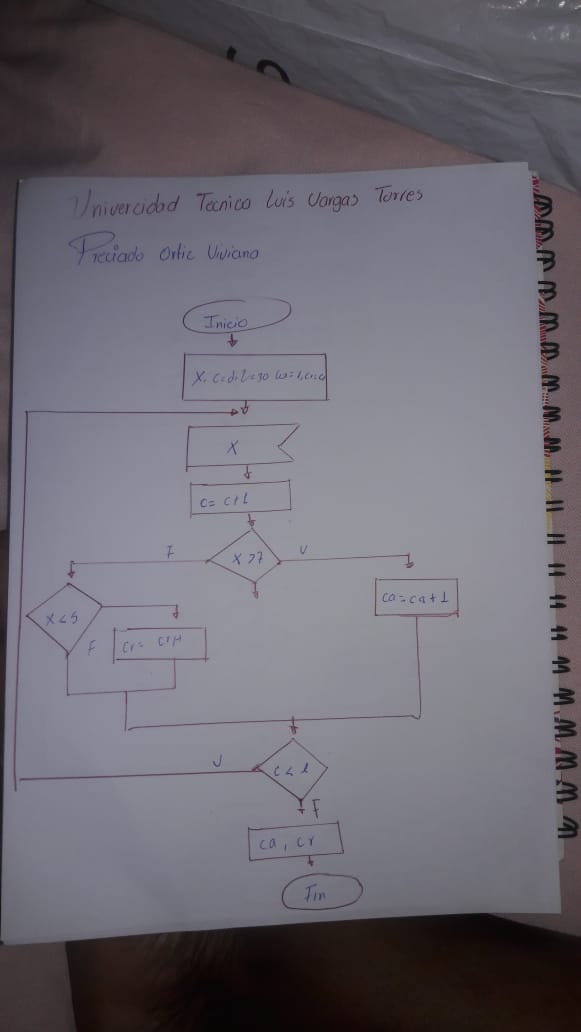 Univercidad Tecnico Luis Vargas Torres
Preciado Ortiz Viviana
Inicio
X
c= c+1
X >7
F
V
X <5
ca=ca+1
F
cr=
V
c < l
F
ca, cr
Fin